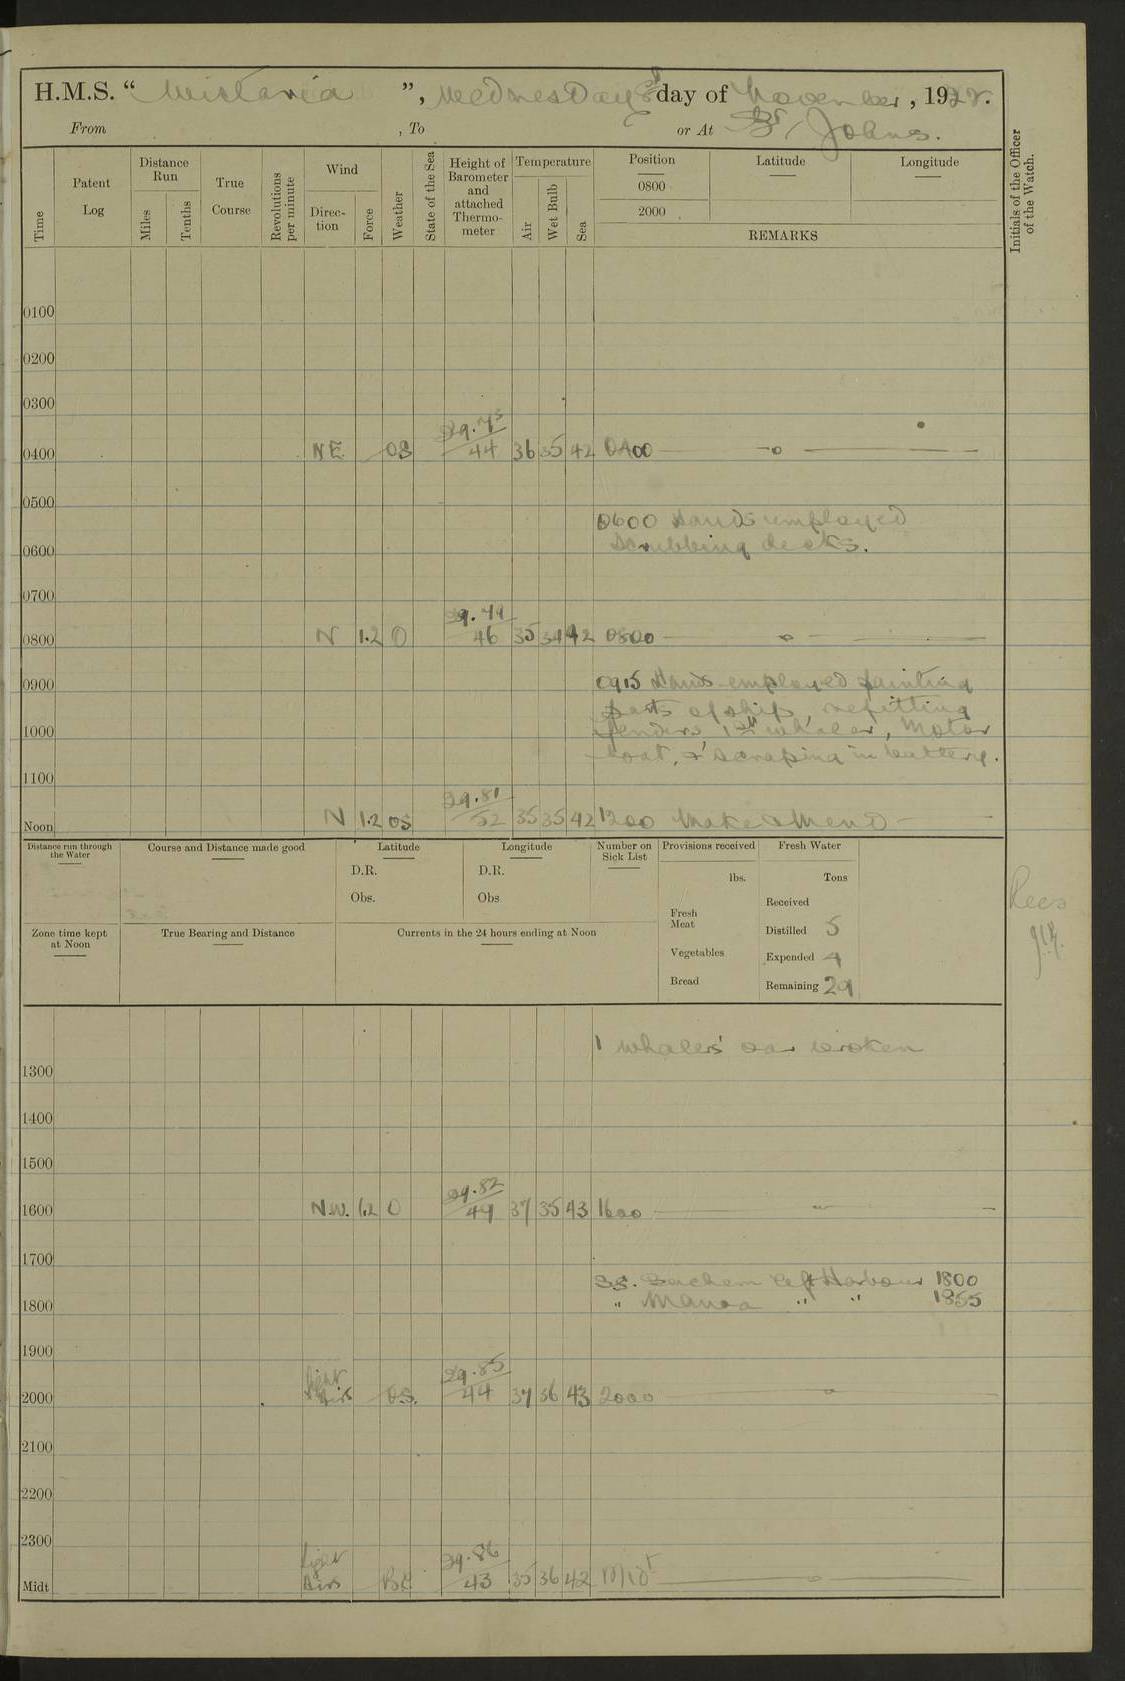 H.M.S. “ Wistaria ”, Wednesday 8th day of November, 1922.
From , To or At St Johns.
Time
Patent Log
Distance Run
Miles
Tenths
True Course
Revolutions per minute
Wind
Direc- tion
Force
Weather
State of the Sea
Height of Barometer and attached Thermo- meter
Temperature
Air
Wet Bulb
Sea
Position
0800
2000
Latitude
Longitude
REMARKS
Initials of the Officer of the Watch.
0100
0200
0300
0400 NE OS 29.75 44 36 35 42 0400
0500
0600 Hands employed
0600 Scrubbing decks.
0700
0800 N 1.2 O 29.79 46 35 34 42 0800
0900 0915 Hands employed painting
parts of ship, refitting
1000 fenders, 1st whaler, Motor
boat, & scraping in battery.
1100
Noon N 1.2 OS 29.81 52 35 35 42 1200 Make & Mend
Distance run through the Water
Course and Distance made good
Latitude
D.R.
Obs.
Longitude
D.R.
Obs
Number on Sick List
Provisions received
lbs.
Fresh Meat
Vegetables
Bread
Fresh Water
Tons
Received
Distilled 5
Expended 4
Remaining 29
Zone time kept at Noon
True Bearing and Distance
Currents in the 24 hours ending at Noon
Rees
1 whalers' oar broken
1300
1400
1500
1600 N.W. 1.2 O 29.82 49 37 35 43 1600
1700
SS. left Harbour 1800
1800 " Manoa " " 1855
1900
2000 Light Airs OS. 29.85 44 37 36 43 2000
2100
2200
2300
Midt Light Airs BC 29.86 43 35 36 42 Midt